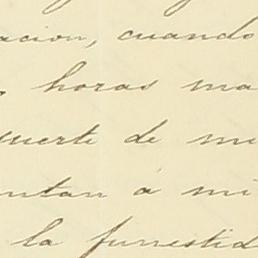 acion, cuando
horas ma
uerte de mi
ntan á mi
la funestid